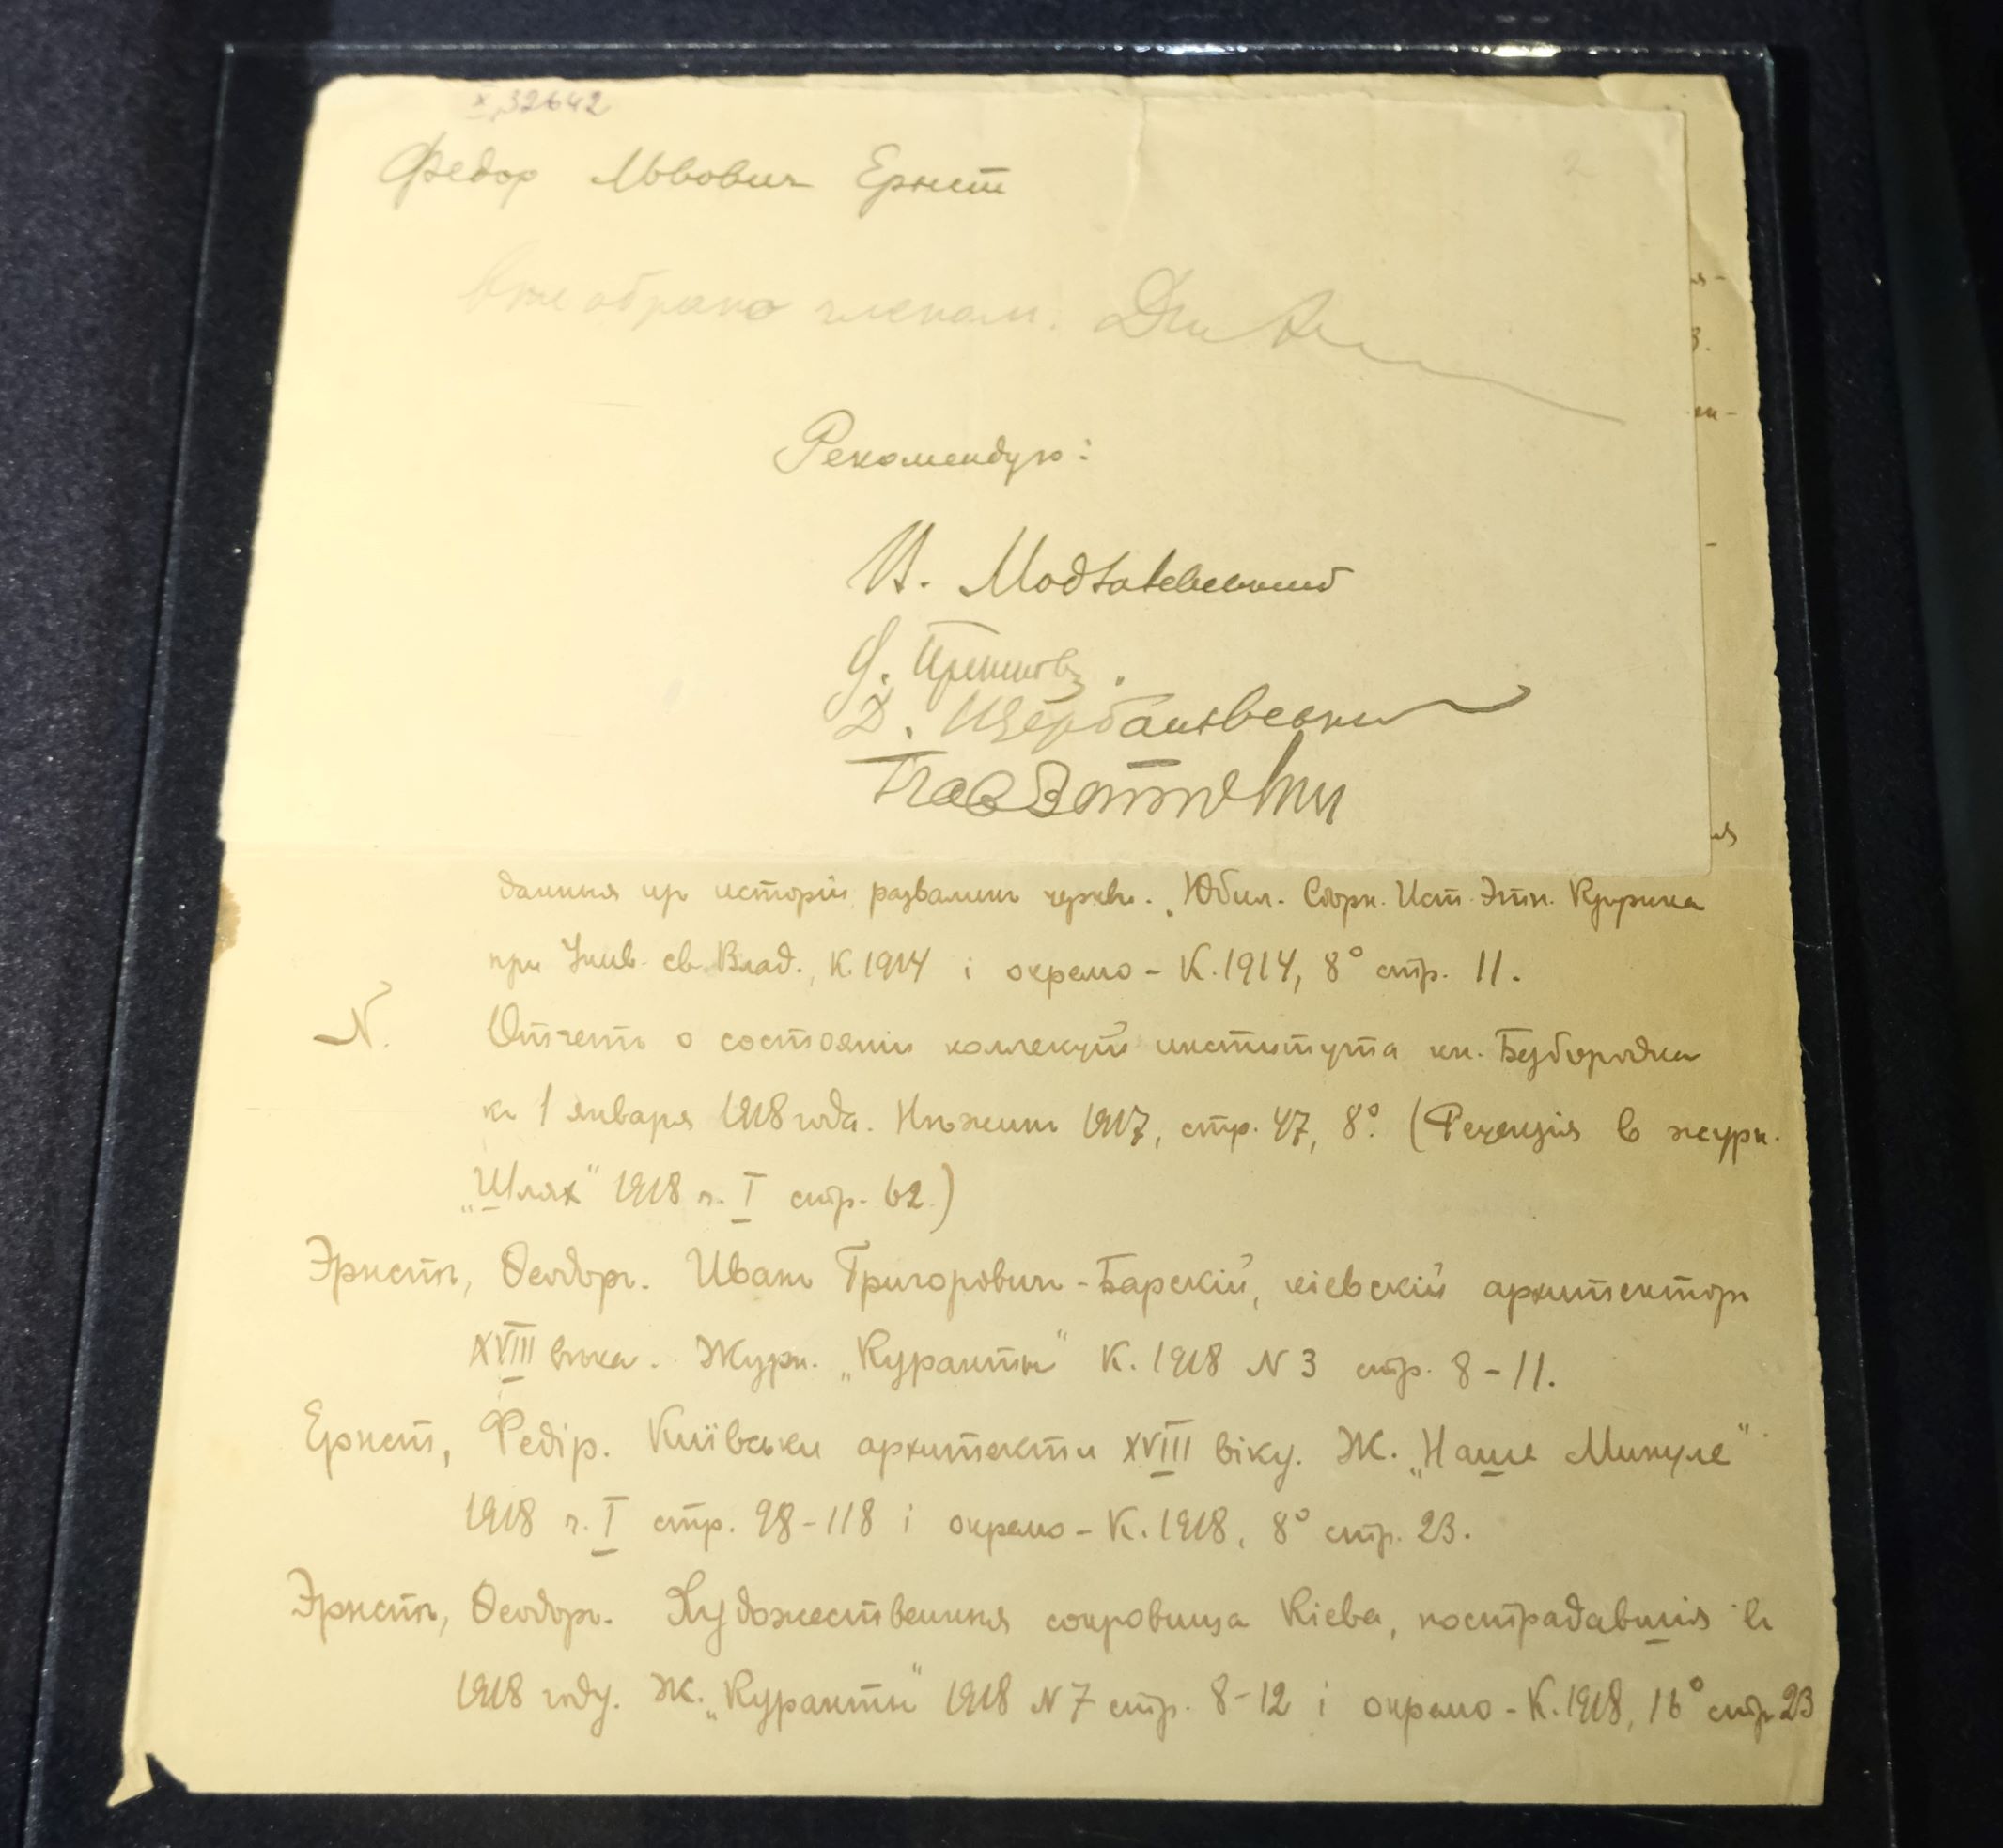 X, 32642
Федор Львович Ернст
Вже обрано членом.
Рекомендую:
Модзалевський
Д. Щербаківський
данныя по исторіи развалинъ церкви. „Юбил. Сборн. Ист. Этн. Кружка
при Унив. св. Влад., К. 1914 і окремо - К. 1914, 8° стр. 11.
N. Отчетъ о состояніи коллекцій института кн. Безбородка
къ 1 января 1918 года. Нѣжинъ 1917, стр. 47, 8°. (Рецензія в журн.
„Шлях" 1918 г. I стр. 62.)
Эрнстъ, Ѳеодоръ. Иванъ Григоровичъ-Барскій, кіевскій архитекторъ
XVIII вѣка. Журн. „Куранты" К. 1918 N 3 стр. 8-11.
Ернст, Федір. Київськи архитекти XVIII віку. Ж. „Наше Минуле"
1918 г. I стр. 98-118 і окремо - К. 1918, 8° стр. 23.
Эрнстъ, Ѳеодоръ. Художественныя сокровища Кіева, пострадавшія въ
1918 году. Ж. „Куранты" 1918 N 7 стр. 8-12 і окремо - К. 1918, 16° стр. 23